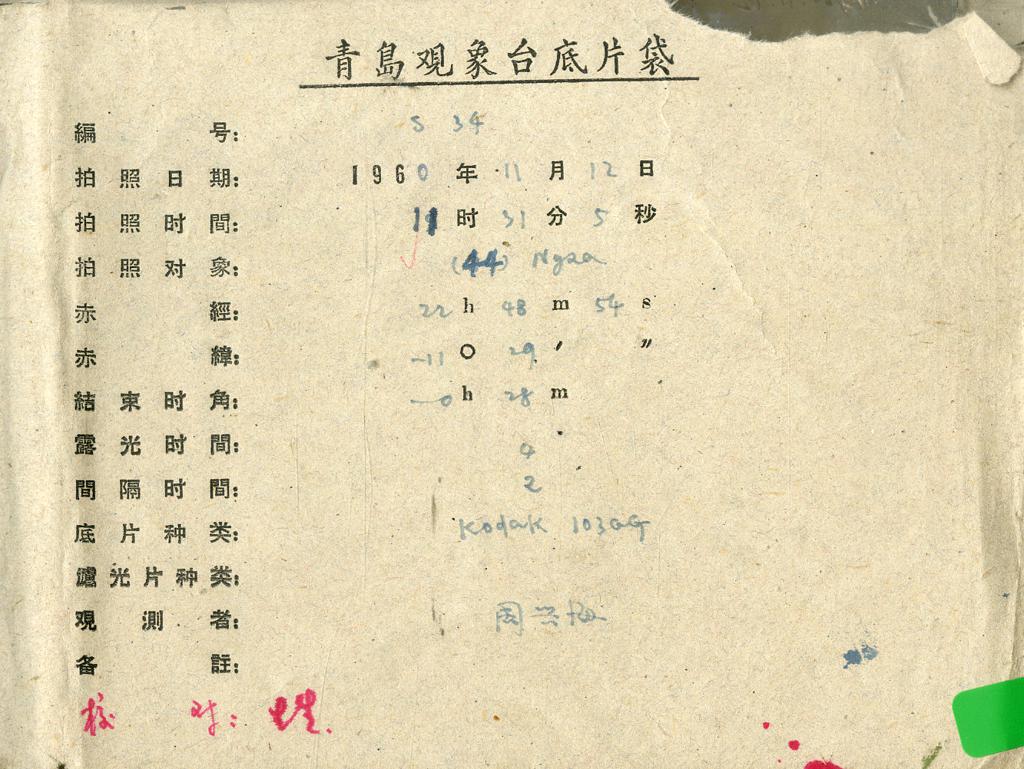 青島观象台底片袋
編 号: S 34
拍照日期: 1960年11月12日
拍照时間: 19时31分5秒
拍照对象: (44) Nysa
赤 經: 22h 48m 54s
赤 緯: -11° 29′ ″
結束时角: -0h 28m
露光时間: 4
間隔时間: 2
底片种类: Kodak 103aG
濾光片种类:
观 測 者: 周兴海
备 註:
校 对: